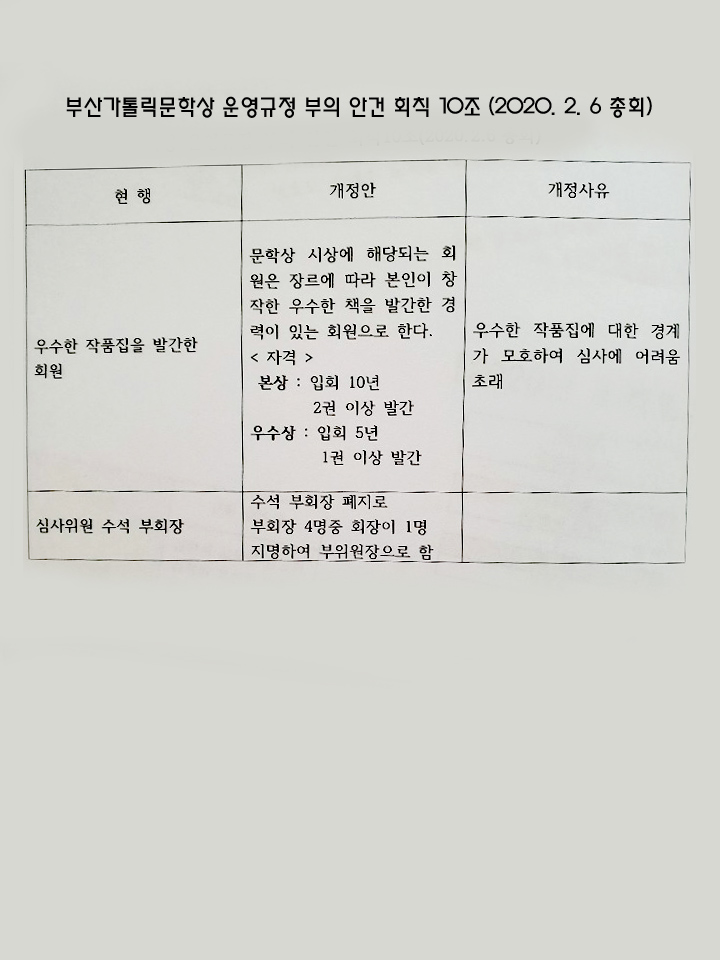 부산가톨릭문학상 운영규정 부의 안건 회칙 10조 (2020. 2. 6 총회)
현 행
개정안
개정사유
우수한 작품집을 발간한
회원
문학상 시상에 해당되는 회
원은 장르에 따라 본인이 창
작한 우수한 책을 발간한 경
력이 있는 회원으로 한다.
< 자격 >
본상 : 입회 10년
2권 이상 발간
우수상 : 입회 5년
1권 이상 발간
우수한 작품집에 대한 경계
가 모호하여 심사에 어려움
초래
심사위원 수석 부회장
수석 부회장 폐지로
부회장 4명중 회장이 1명
지명하여 부위원장으로 함